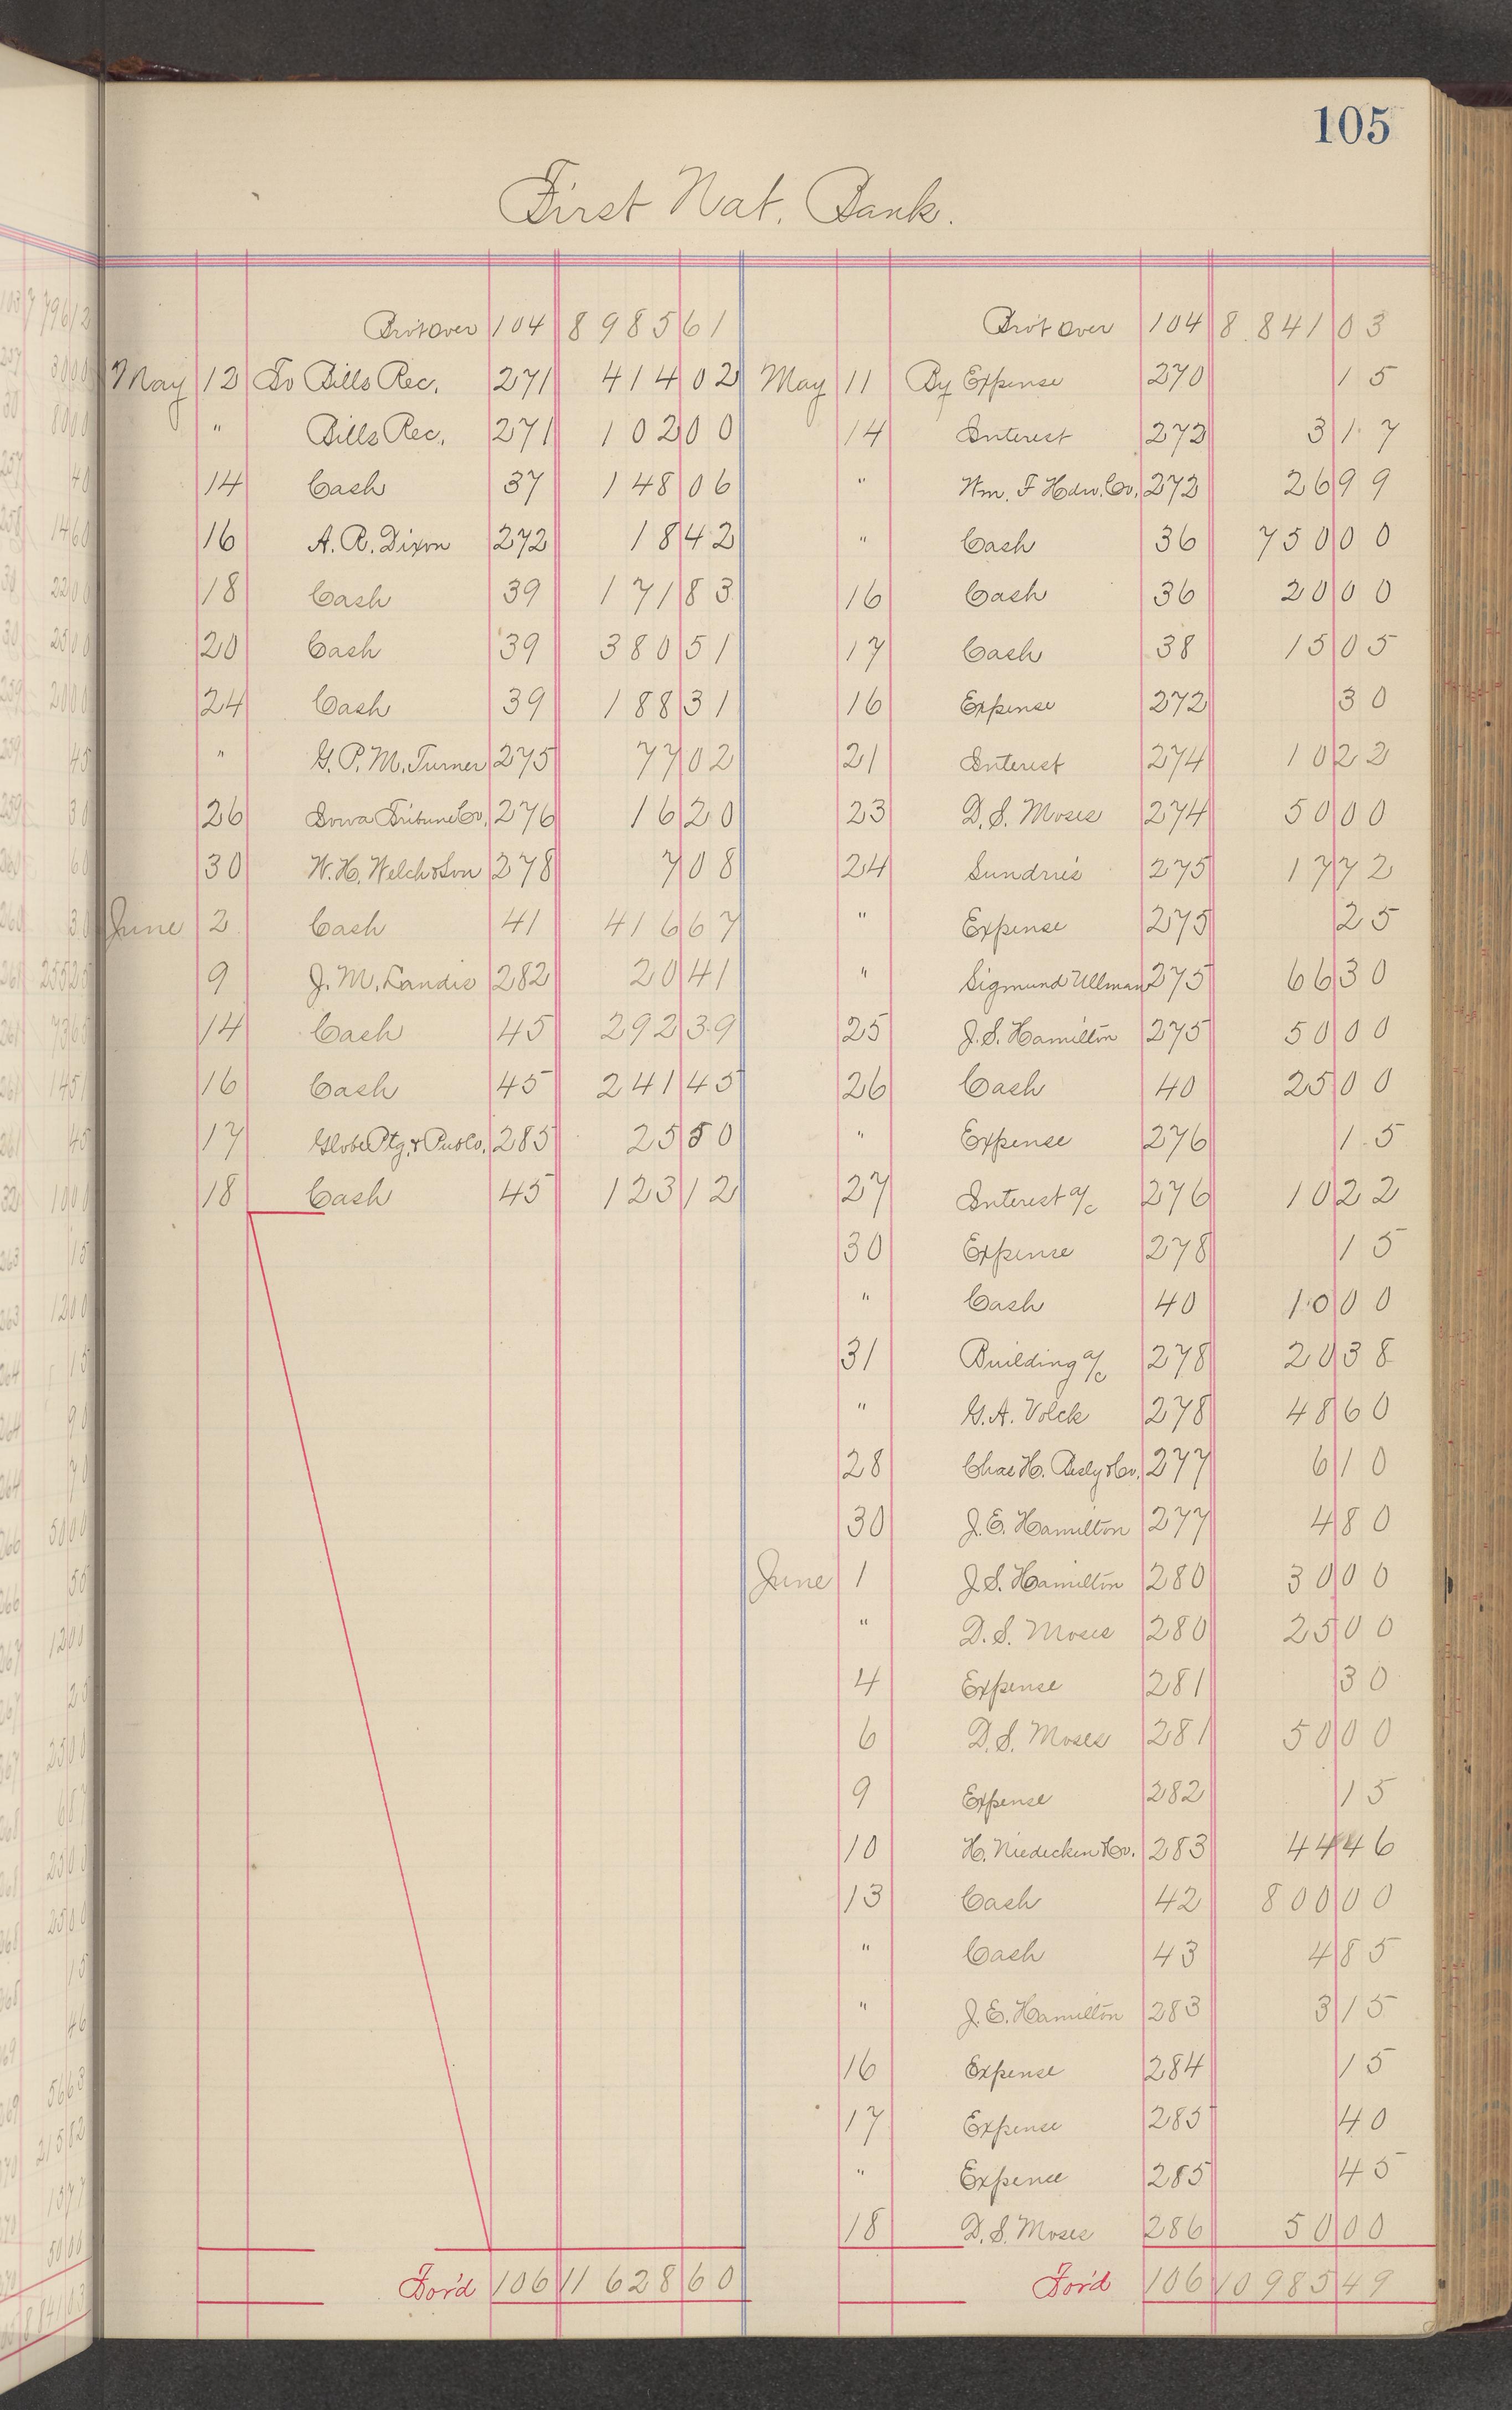 105
First Nat. Bank.
Bro't Over 104 8 985 61
May 12 To Bills Rec. 271 414 02
" Bills Rec. 271 102 00
14 Cash 37 148 06
16 A. R. Dixon 272 18 42
18 Cash 39 171 83
20 Cash 39 380 51
24 Cash 39 188 31
" G. P. M. Turner 275 77 02
26 Iowa Tribune Co. 276 16 20
30 W. H. Welch & Son 278 7 08
June 2 Cash 41 416 67
9 J. M. Landis 282 20 41
14 Cash 45 292 39
16 Cash 45 241 45
17 Globe Ptg. & Pub Co. 285 25 50
18 Cash 45 123 12
For'd 106 11 628 60
Bro't Over 104 8 841 03
May 11 By Expense 270 15
14 Interest 272 3 17
" Wm. F Hdw. Co. 272 26 99
" Cash 36 750 00
16 Cash 36 20 00
17 Cash 38 15 05
16 Expense 272 30
21 Interest 274 10 22
23 D. S. Moses 274 50 00
24 Sundries 275 17 72
" Expense 275 25
" Sigmund Ullman 275 66 30
25 J. S. Hamilton 275 50 00
26 Cash 40 25 00
" Expense 276 15
27 Interest a/c 276 10 22
30 Expense 278 15
" Cash 40 10 00
31 Building a/c 278 20 38
" G. A. Volck 278 48 60
28 Chas H. Besly & Co. 277 6 10
30 J. E. Hamilton 277 4 80
June 1 J. S. Hamilton 280 30 00
" D. S. Moses 280 25 00
4 Expense 281 30
6 D. S. Moses 281 50 00
9 Expense 282 15
10 H. Niedecken & Co. 283 44 46
13 Cash 42 800 00
" Cash 43 4 85
" J. E. Hamilton 283 3 15
16 Expense 284 15
17 Expense 285 40
" Expense 285 45
18 D. S. Moses 286 50 00
For'd 106 10 985 49